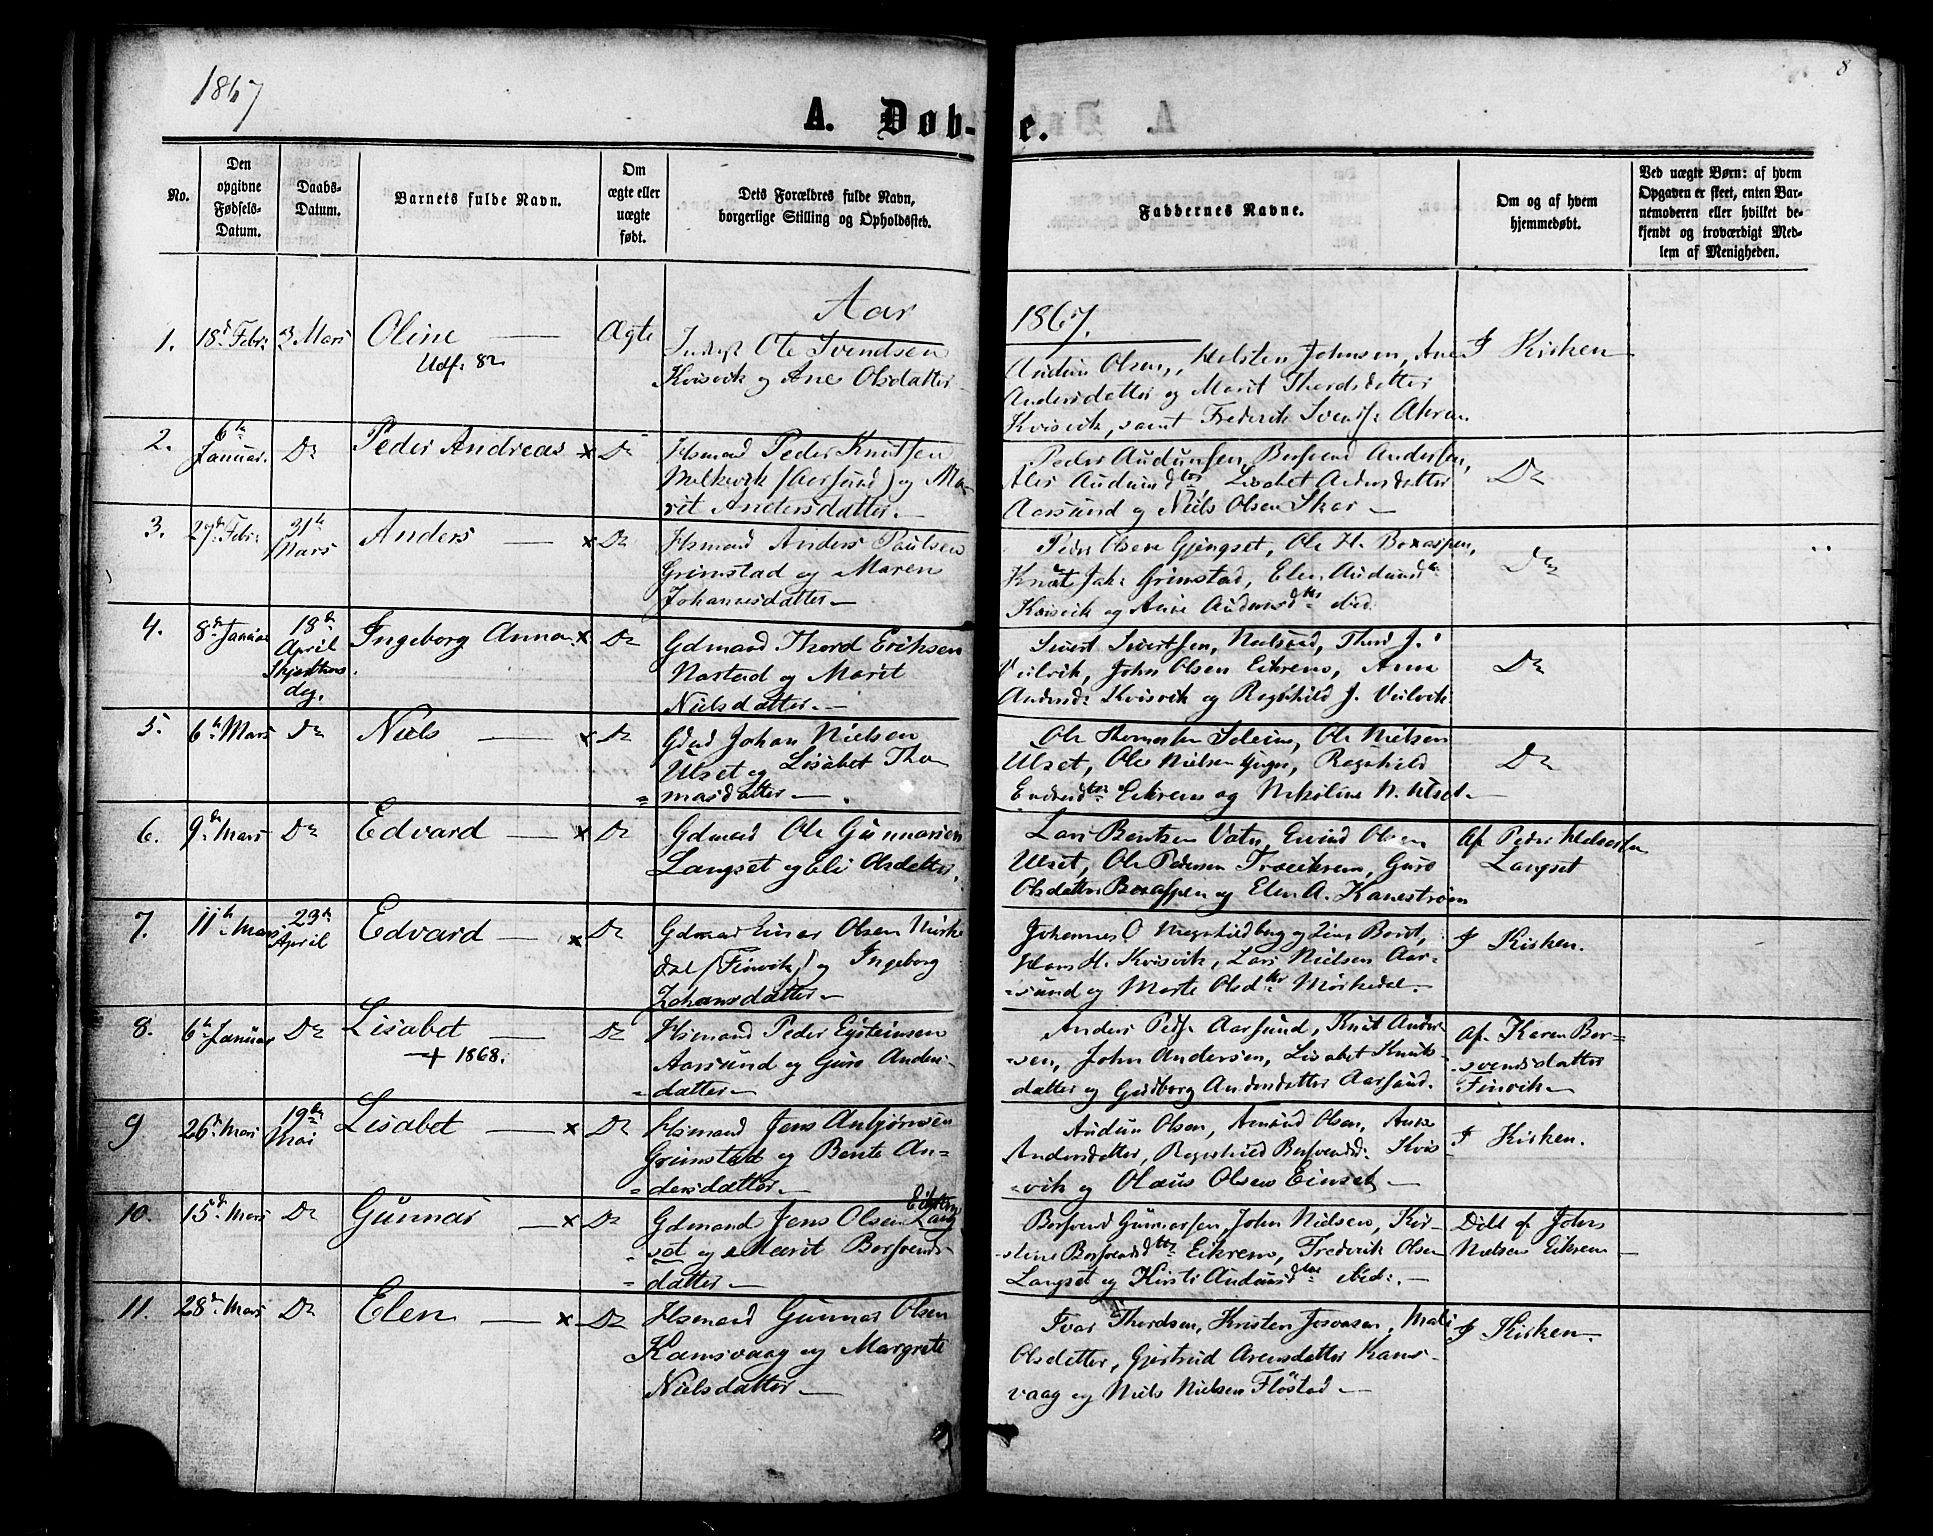 1867
8
A. Døb-e.
No.
Den opgivne Fødsels-Datum.
Daabs-Datum.
Barnets fulde Navn.
Om ægte eller uægte født.
Dets Forældres fulde Navn, borgerlige Stilling og Opholdssted.
Faddernes Navne.
Om og af hvem hjemmedøbt.
Ved uægte Børn: af hvem
Opgaven er skeet, enten Bar-
nemoderen eller hvilket be-
kjendt og troværdigt Med-
lem af Menigheden.
Aar 1867.
1. 18d Febr: 3 Mars Oline Ægte
Udf. 82
Ole Svendsen
Kvisvik og Ane Olsdatter
Audun Olsen, Halsten Johnsen, Ane
Andersdatter og Marit Thordsdatter
Kvisvik, samt Frederik
I Kirken
2. 6te Januar. Do Peder Andreas x Do
Hsmand Peder Knutsen
Melkevik (Aarsund) og Ma-
rit Andersdatter.
Peder Audunsen, Bersvend Andersen,
Lisabet Andersdatter
Aarsund og Niels Olsen Skar
Do
3. 27de Febr: 31te Mars Anders x Do
Hsmand Anders Paulsen
Grimstad og Maren
Johannesdatter
Peder Olsen Gjengset, Ole H. Boxaspen,
Knut Joh: Grimstad, Elen
Kvisvik og Ane ibid.
Do
4. 8de Januar 18de April Skjærthorsdag. Ingeborg Anna x Do
Gdmand Thord Eriksen
Nastad og Marit
Nielsdatter.
Sivert Sivertsen, Thord J.
Veilvik, John Olsen Eikrem, Anne
Kvisvik og Ragnhild J. Veilvik
Do
5. 6te Mars Do Niels x Do
Johan Nielsen
Ulset og Lisabet Tho
=masdatter
Ole Seleim, Ole Nielsen
Ulset, Ole Nielsen Ragnhild
Eikrem og Nikoline N. Ulset
Do
6. 9de Mars Do Edvard x Do
Gdmand Ole Gunnarsen
Langset og Eli Olsdatter.
Lars Bentsen Vatn, Eivind Olsen
Ulset, Ole Pedersen Guro
Olsdatter Boxaspen og Elen A. Kanestrøm
Af Peder
Langset
7. 11te Mars 23de April Edvard x Do
Gdmand Einar Olsen Mørke
dal (Finvik) og Ingeborg
Johansdatter
Johannes O
Hans H. Kvisvik, Lars Nielsen Aar-
=sund og Marte Olsdtr Mørkedal.
I Kirken.
8. 6te Januar Do Lisabet Do
+ 1868.
Hsmand Peder Eysteinsen
Aarsund og Guro Anders-
=datter
Anders Peds: Aarsund, Knut Ander-
=sen, John Andersen, Lisabet Knuts-
datter og Gudborg Andersdatter Aarsund.
Af Karen Ber-
=svendsdatter
Finvik
9 26de Mars 19de Mai Lisabet x Do
Hsmand Jens Anbjørnsen
Grimstad og Bente An-
=dersdatter
Audun Olsen, Amund Olsen, Ane
Andersdatter, Ragnhild Bersvendsd: Kvis
=vik og Olaus Olsen Einset
I Kirken.
10. 15de Mars Do Gunnar x Do
Gdmand Jens Olsen Eikrem Lang
=set og Marit Bersvends-
=datter
Bersvend Gunnarsen, John Nielsen, Kir-
=stine Bersvendsdtr Eikrem, Frederik Olsen
Langset og Kirsti Audunsdtr ibid:
Do af John
Nielsen Eikrem
11. 28de Mars Do Elen x Do
Hsmand Gunnar Olsen
Kamsvaag og Margrete
Nielsdatter
Ivar Thordsen, Kristen Josvasen, Mali
Olsdatter, Gjertrud Arensdatter Kams-
vaag og Niels Nielsen Flostad
I Kirken.